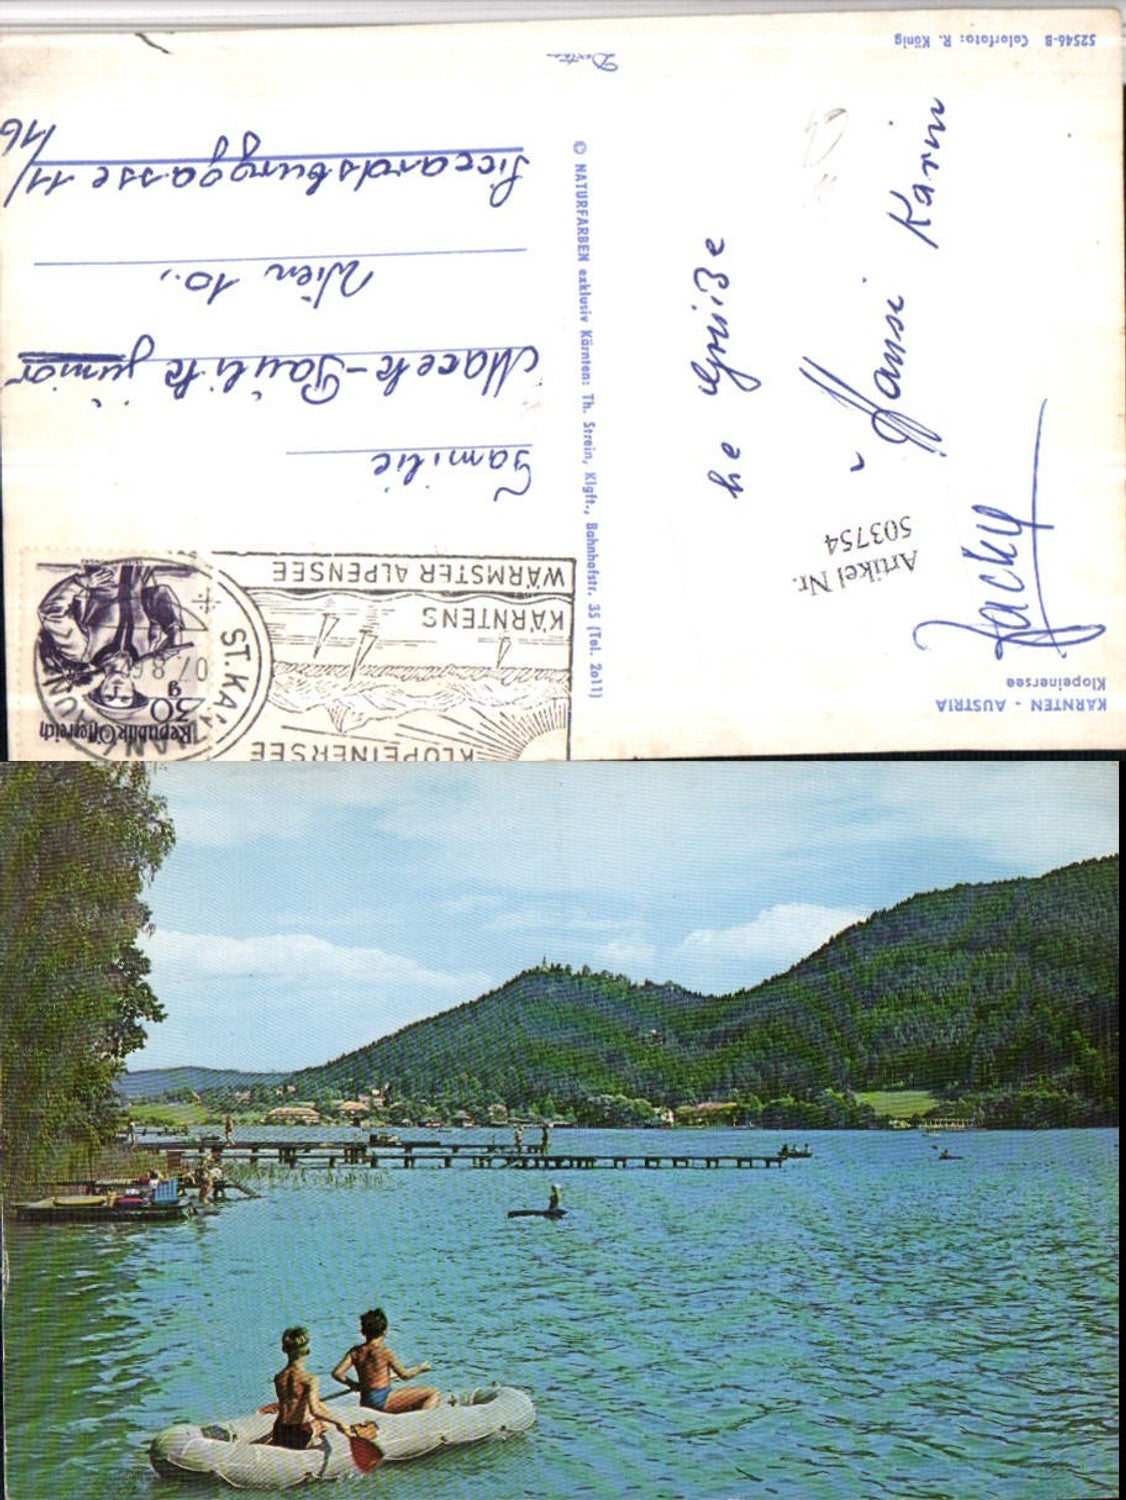 KÄRNTEN - AUSTRIA
Klopeinersee
Jacky
Hansi Karin
he Grüße
Artikel Nr.
503754
52546-B Colorfoto: R. König
© NATURFARBEN exklusiv Kärnten: Th. Strein, Klgft., Bahnhofstr. 35 (Tel. 2611)
KLOPEINERSEE
KÄRNTENS
WÄRMSTER ALPENSEE
ST. KAN
07.8.6
Republik Österreich
30
g
Familie
junior
Wien 10.,
Siccardsburggasse 11/
/16